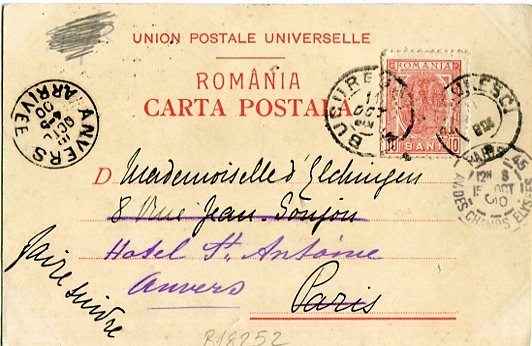 UNION POSTALE UNIVERSELLE
ROMÂNIA
CARTA POSTALĂ
ROMANIA
10 BANI 10
BUCURESCI
11 OCT
ANVERS
ARRIVÉE
AV. DES CHAMPS ELYSÉES
D Mademoiselle d'Elchingen
8 Rue Jean Goujon
Hotel St. Antoine
Anvers
Paris
faire suivre
B18252